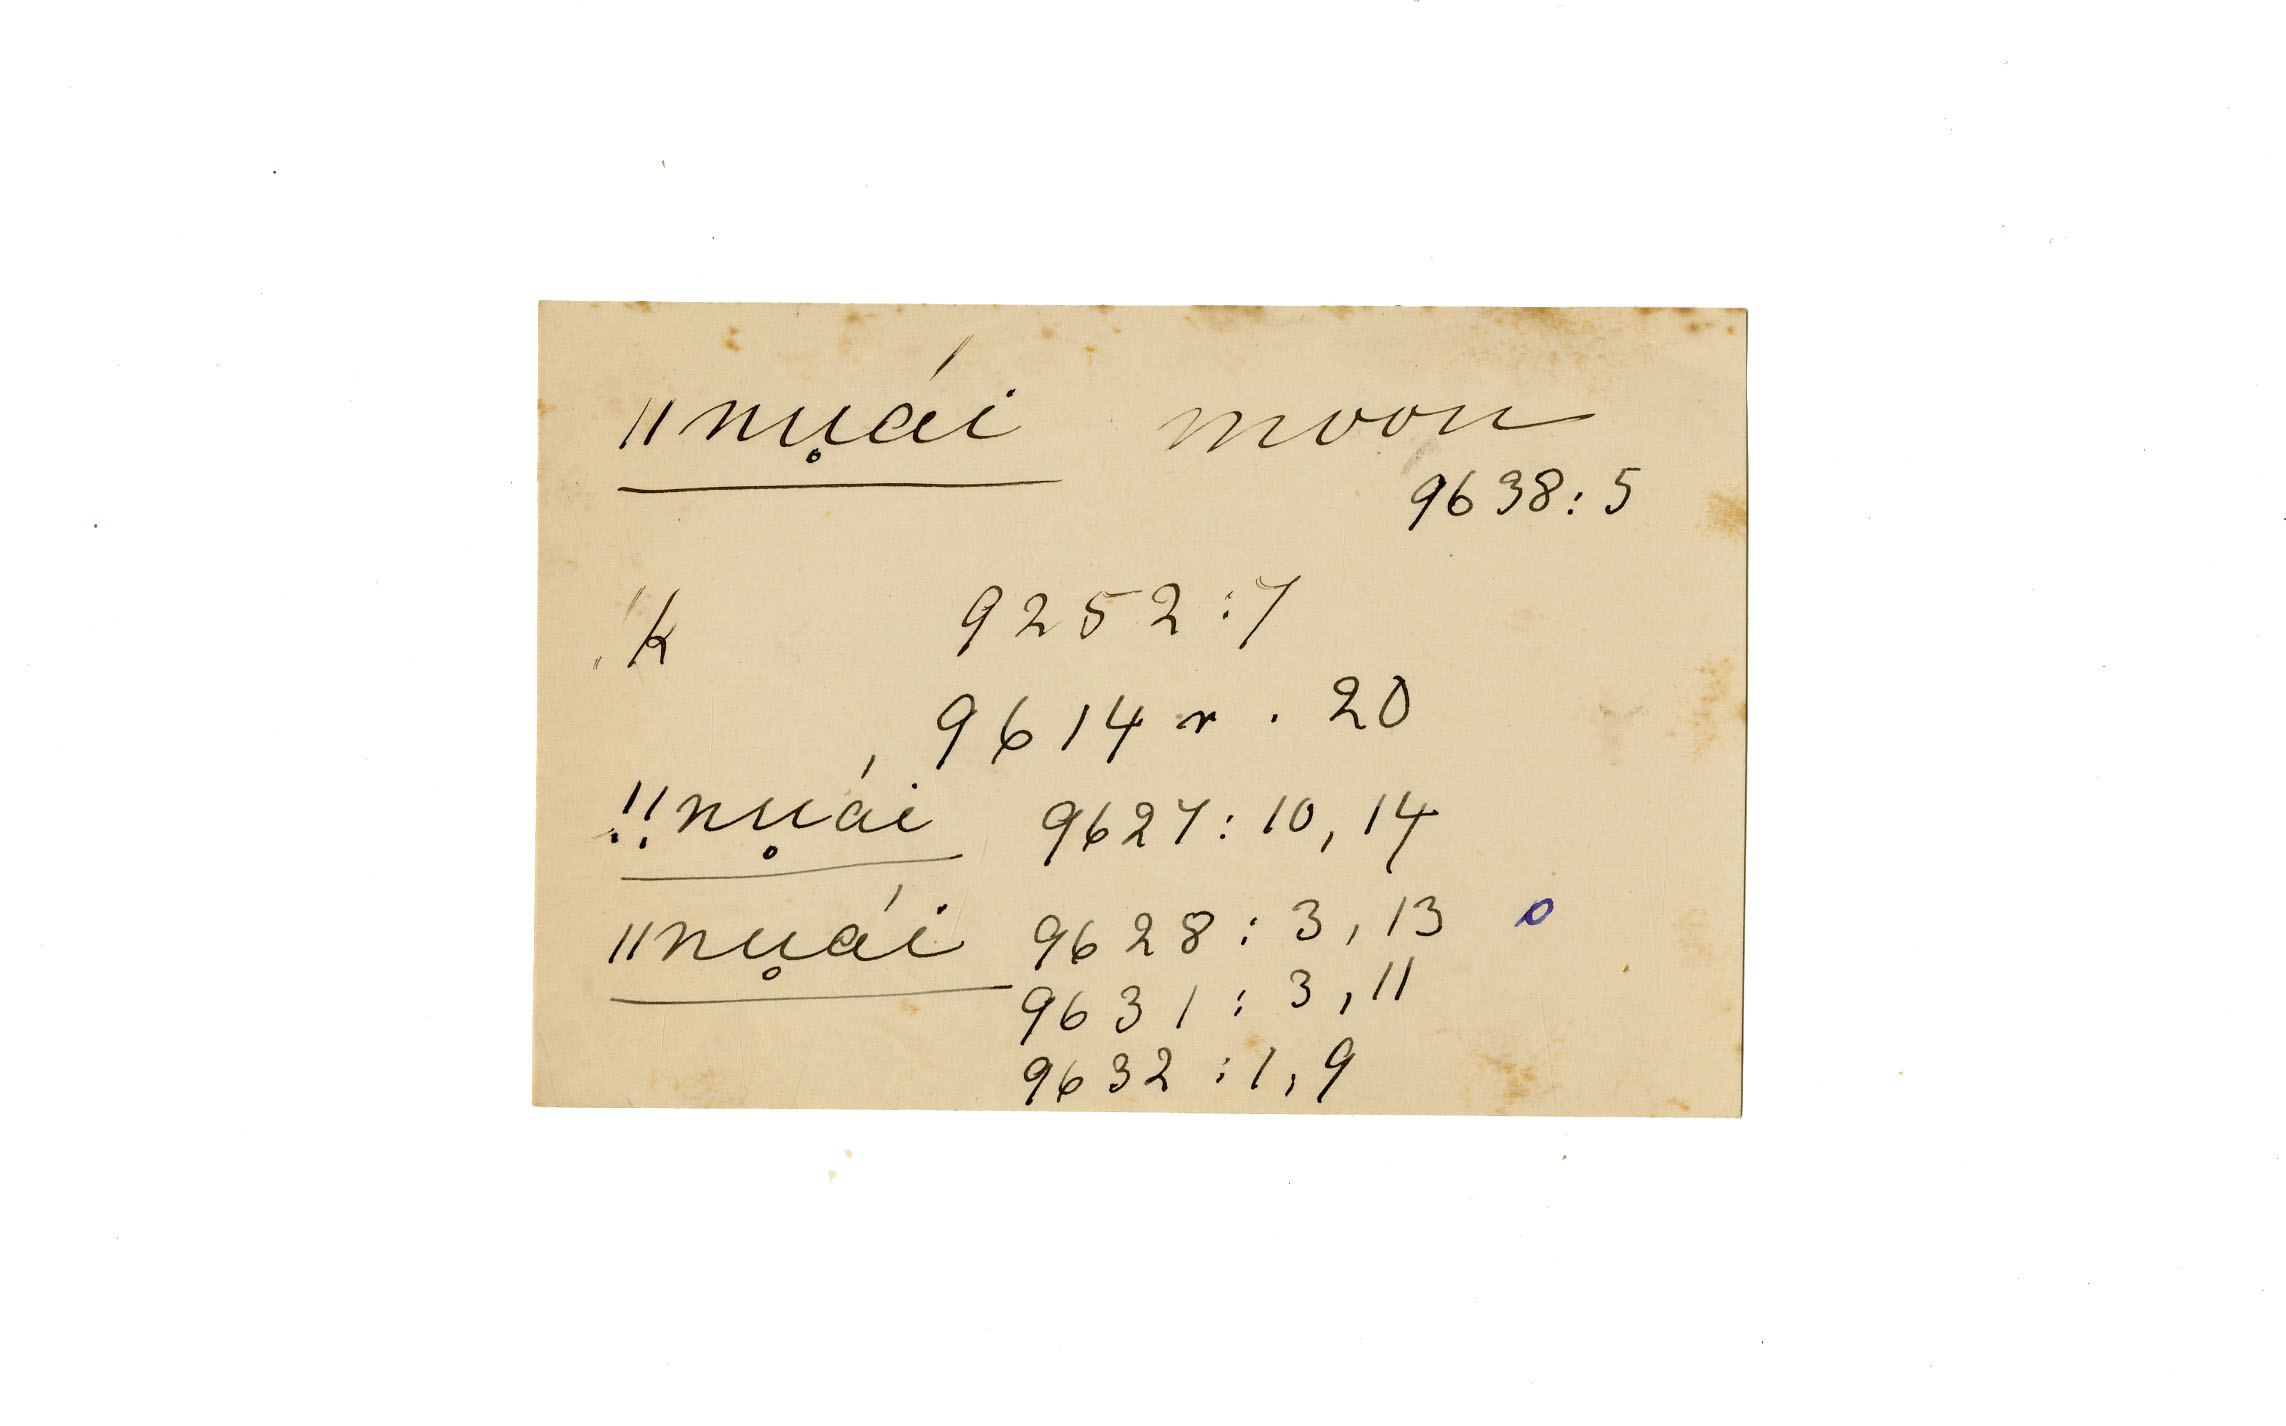 ǁnu̥ái moon
9638:5
!k 9252:7
9614 r. 20
!!nu̥ái 9627:10,14
ǁnu̥ái 9628:3,13
9631:3,11
9632:1,9